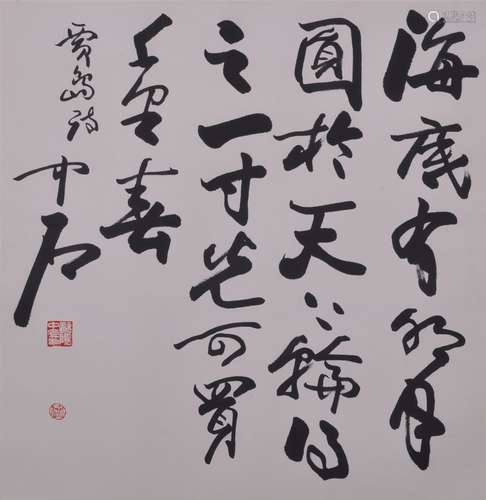 海底有明月
圓於天上輪得
之一寸光可買
千里春
賈島詩
中石